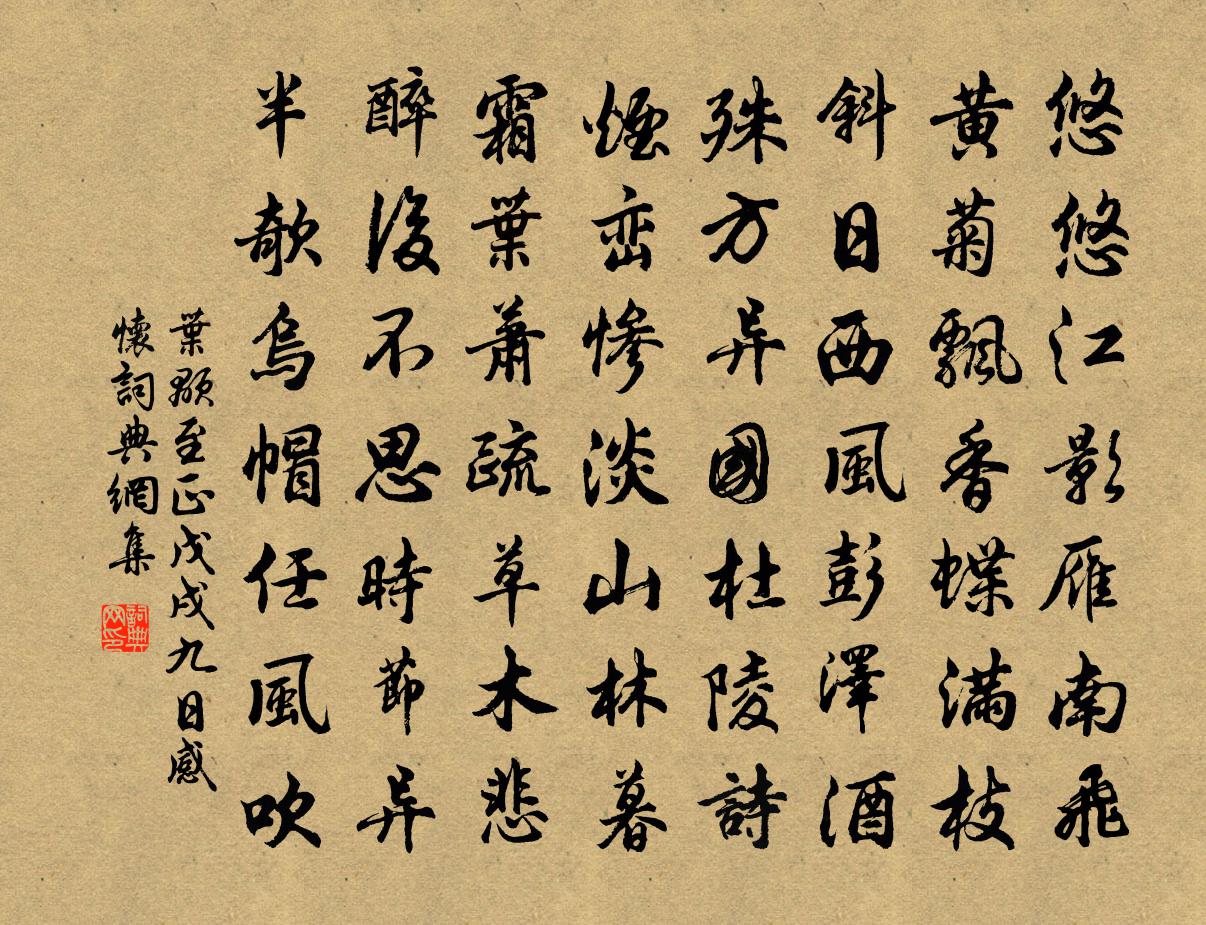 悠悠江影雁南飛
黄菊飄香蝶满枝
斜日西風彭澤酒
殊方异國杜陵詩
煙巒慘淡山林暮
霜葉蕭疏草木悲
醉後不思時節异
半欹烏帽任風吹
葉顒至正戊戌九日感
懷詞典網集
詞典
网印